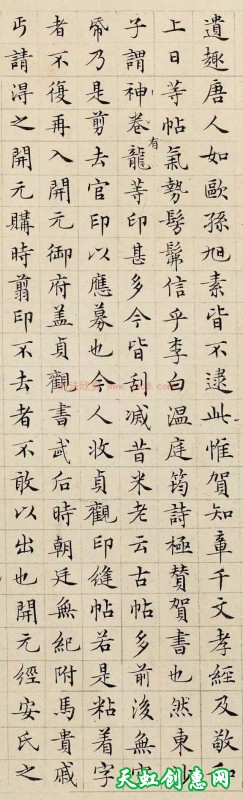 遺趣唐人如歐孫旭素皆不逮此惟賀知章千文孝經及敬和
上日等帖氣勢髣髴信乎李白溫庭筠詩極賛賀書也然東
子謂神卷有龍等印甚多今皆刮滅昔米老云古帖多前後無空
帋乃是剪去官印以應募也今人收貞觀印縫帖若是粘着字
者不復再入開元御府盖貞觀書武后時朝廷無紀附馬貴戚
丐請淂之開元購時翦印不去者不敢以出也開元經安氏之
天虹创意网